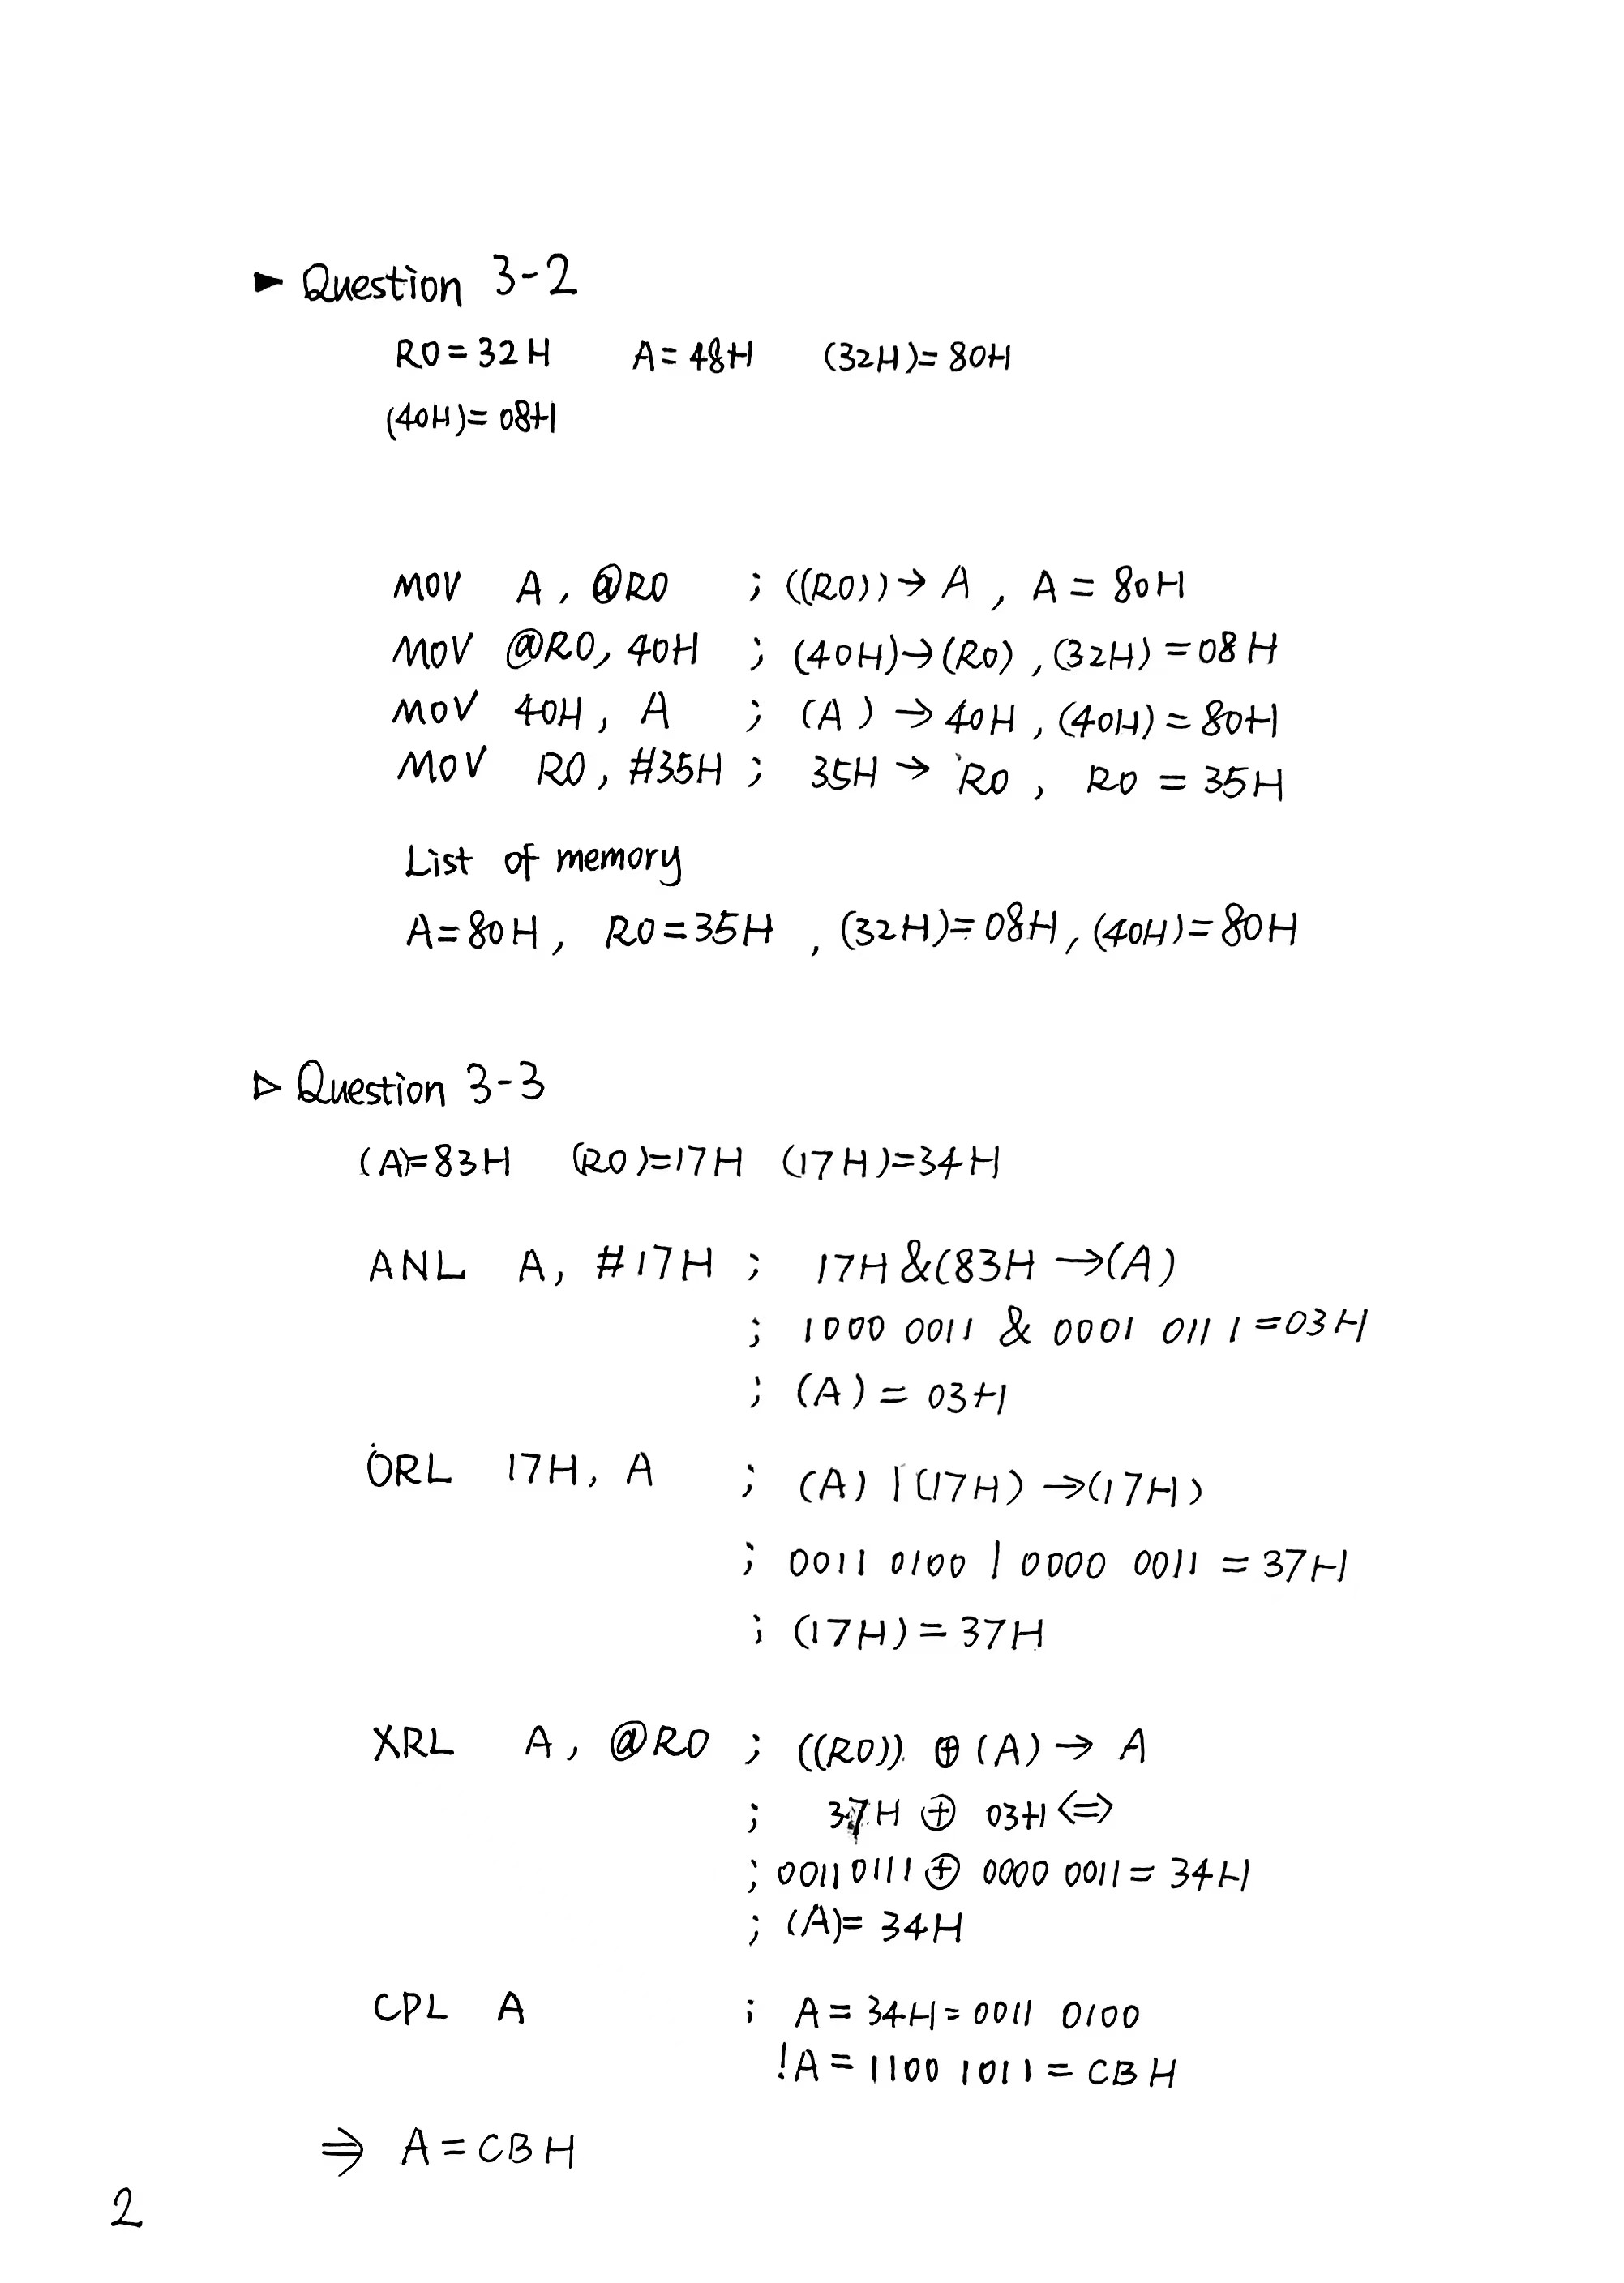 ► Question 3-2
R0=32H A=48H (32H)=80H
(40H)=08H
MOV A, @R0 ; ((R0))→A, A=80H
MOV @R0, 40H ; (40H)→(R0), (32H)=08H
MOV 40H, A ; (A)→40H, (40H)=80H
MOV R0, #35H ; 35H→R0, R0=35H
List of memory
A=80H, R0=35H, (32H)=08H, (40H)=80H
▷ Question 3-3
(A)=83H (R0)=17H (17H)=34H
ANL A, #17H ; 17H&(83H→(A)
; 1000 0011 & 0001 0111=03H
; (A)=03H
ORL 17H, A ; (A)|(17H)→(17H)
; 0011 0100 | 0000 0011 = 37H
; (17H)=37H
XRL A, @R0 ; ((R0)) ⊕ (A)→A
; 37H ⊕ 03H⇔
; 0011 0111 ⊕ 0000 0011=34H
; (A)=34H
CPL A ; A=34H=0011 0100
!A=1100 1011=CBH
⇒ A=CBH
2